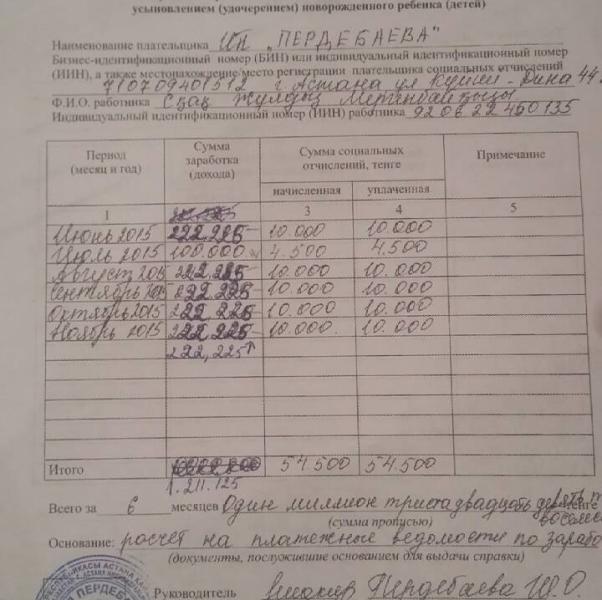 усыновлением (удочерением) новорожденного ребенка (детей)
Наименование плательщика ИП "ПЕРДЕБАЕВА"
Бизнес-идентификационный номер (БИН) или индивидуальный идентификационный номер
(ИИН), а также местонахождение/место регистрации плательщика социальных отчислений
710709401512 г Астана ул Куйши-Дина 44
Ф.И.О. работника Жулдыз
Индивидуальный идентификационный номер (ИИН) работника 920622450135
Период (месяц и год) Сумма заработка (дохода) Сумма социальных отчислений, тенге Примечание
начисленная уплаченная
1 3 4 5
Июнь 2015 222.225 10.000 10.000
Июль 2015 100.000 4.500 4.500
Август 2015 222.225 10.000 10.000
Сентябрь 2015 222.225 10.000 10.000
Октябрь 2015 222.225 10.000 10.000
Ноябрь 2015 222.225 10.000 10.000
222,225
Итого 54.500 54.500
1.211.125
Всего за 6 месяцев Один миллион триста двадцать девять тенге
(сумма прописью)
Основание: расчет на платежные ведомости по
(документы, послужившие основанием для выдачи справки)
Руководитель Пердебаева